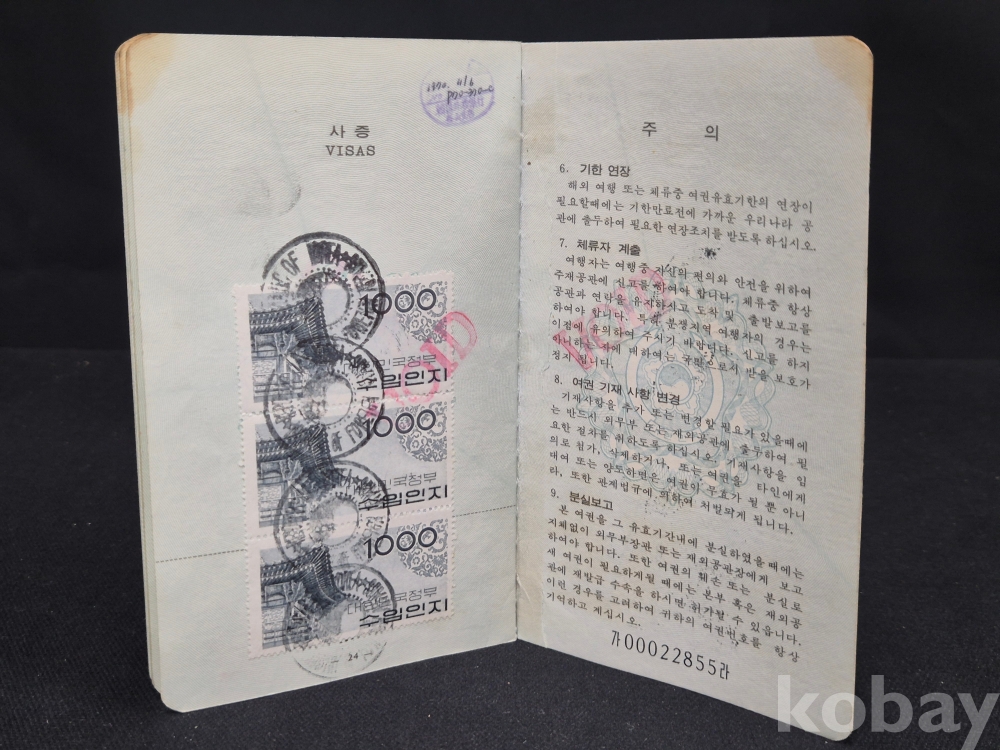 사 증
VISAS
1000
수입인지
1000
수입인지
1000
대한민국정부
수입인지
VOID
24
주 의
6. 기한 연장
해외 여행 또는 체류중 여권유효기한의 연장이
필요할때에는 기한만료전에 가까운 우리나라 공
관에 출두하여 필요한 연장조치를 받도록 하십시오.
7. 체류자 계출
여행자는 여행중 자신의 편의와 안전을 위하여
주재공관에 신고를 하여야 합니다. 체류중 항상
공관과 연락을 유지하시고 도착 및 출발보고를
하여야 합니다. 특히 분쟁지역 여행자의 경우는
이점에 유의하여 주시기 바랍니다. 신고를 하지
아니하는 자에 대하여는 국민으로서 받을 보호가
정지 됩니다.
8. 여권 기재 사항 변경
기재사항을 추가 또는 변경할 필요가 있을때에
는 반드시 외무부 또는 재외공관에 출두하여 필
요한 절차를 취하도록 하십시오. 기재사항을 임
의로 첨가, 삭제하거나, 또는 여권을 타인에게
대여 또는 양도하면은 여권이 무효가 될 뿐 아니
라, 또한 관계법규에 의하여 처벌받게 됩니다.
9. 분실보고
본 여권을 그 유효기간내에 분실하였을 때에는
지체없이 외무부장관 또는 재외공관장에게 보고
하여야 합니다. 또한 여권의 훼손 또는 분실로
새 여권이 필요하게될 때에는 본부 혹은 재외공
관에 재발급 수속을 하시면 허가될 수 있읍니다.
이런 경우를 고려하여 귀하의 여권번호를 항상
기억하고 계십시오.
가00022855라
kobay